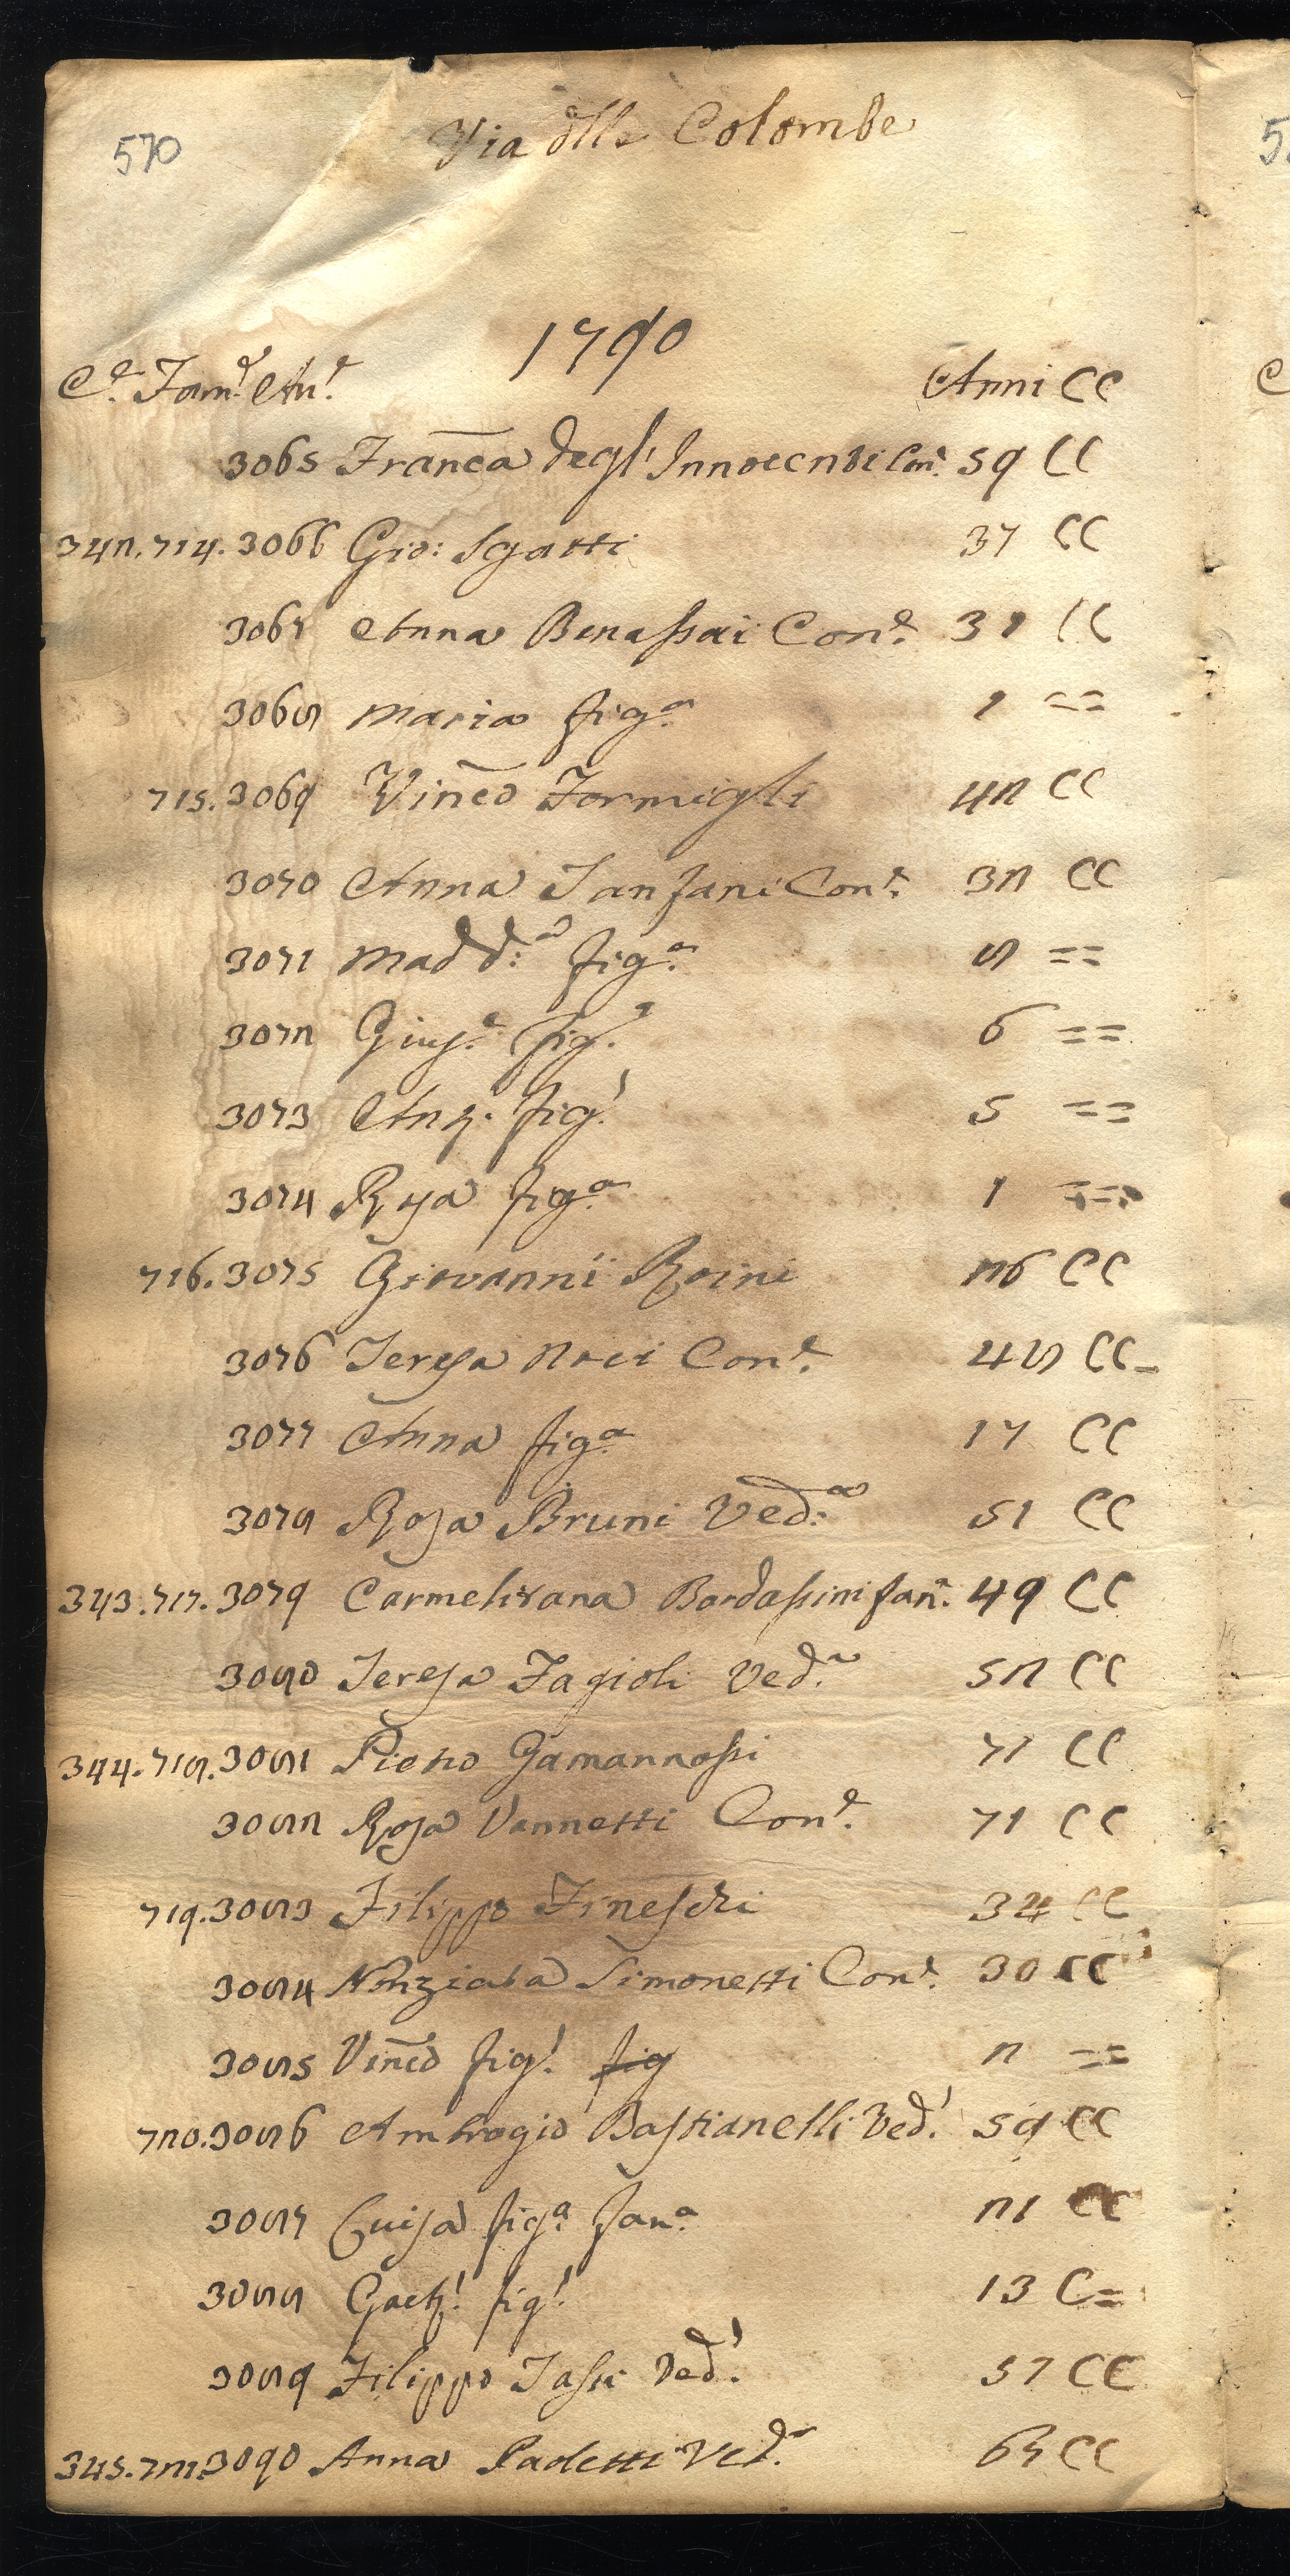 570
Via dlle Colombe
1790
C.e Fam.e An.e Anni CC
3065 Franca degl'Innocenti Con.e 59 CC
342.714. 3066 Gio: Sgatti 37 CC
3067 Anna Benassai Con.e 31 CC
3068 Maria fig.a 1 ==
715. 3069 Vinco Formigli 42 CC
3070 Anna Fanfani Con.e 32 CC
3071 Madd:a fig.a 8 ==
3072 Gius.e fig.o 6 ==
3073 Ant. fig.o 5 ==
3074 Rosa fig.a 1 ==
716. 3075 Giovanni Roini 26 CC
3076 Teresa Noci Con.e 48 CC
3077 Anna fig.a 17 CC
3078 Rosa Bruni Ved:a 51 CC
343.717. 3079 Carmelitana Bardassini fan. 49 CC
3080 Teresa Fagioli Ved.a 52 CC
344.718. 3081 Pietro Gamannossi 71 CC
3082 Rosa Vannetti Con.e 71 CC
719. 3083 Filippo Fineschi 34 CC
3084 Nunziata Simonetti Con.e 30 CC
3085 Vinco fig.o fig 2 ==
720. 3086 Ambrogio Bastianelli Ved.o 59 CC
3087 Luisa fig.a fan.a 21 CC
3088 Gaet.o fig.o 13 C=
3089 Filippo Tassi Ved.o 57 CC
345.721. 3090 Anna Paoletti Ved.a 67 CC